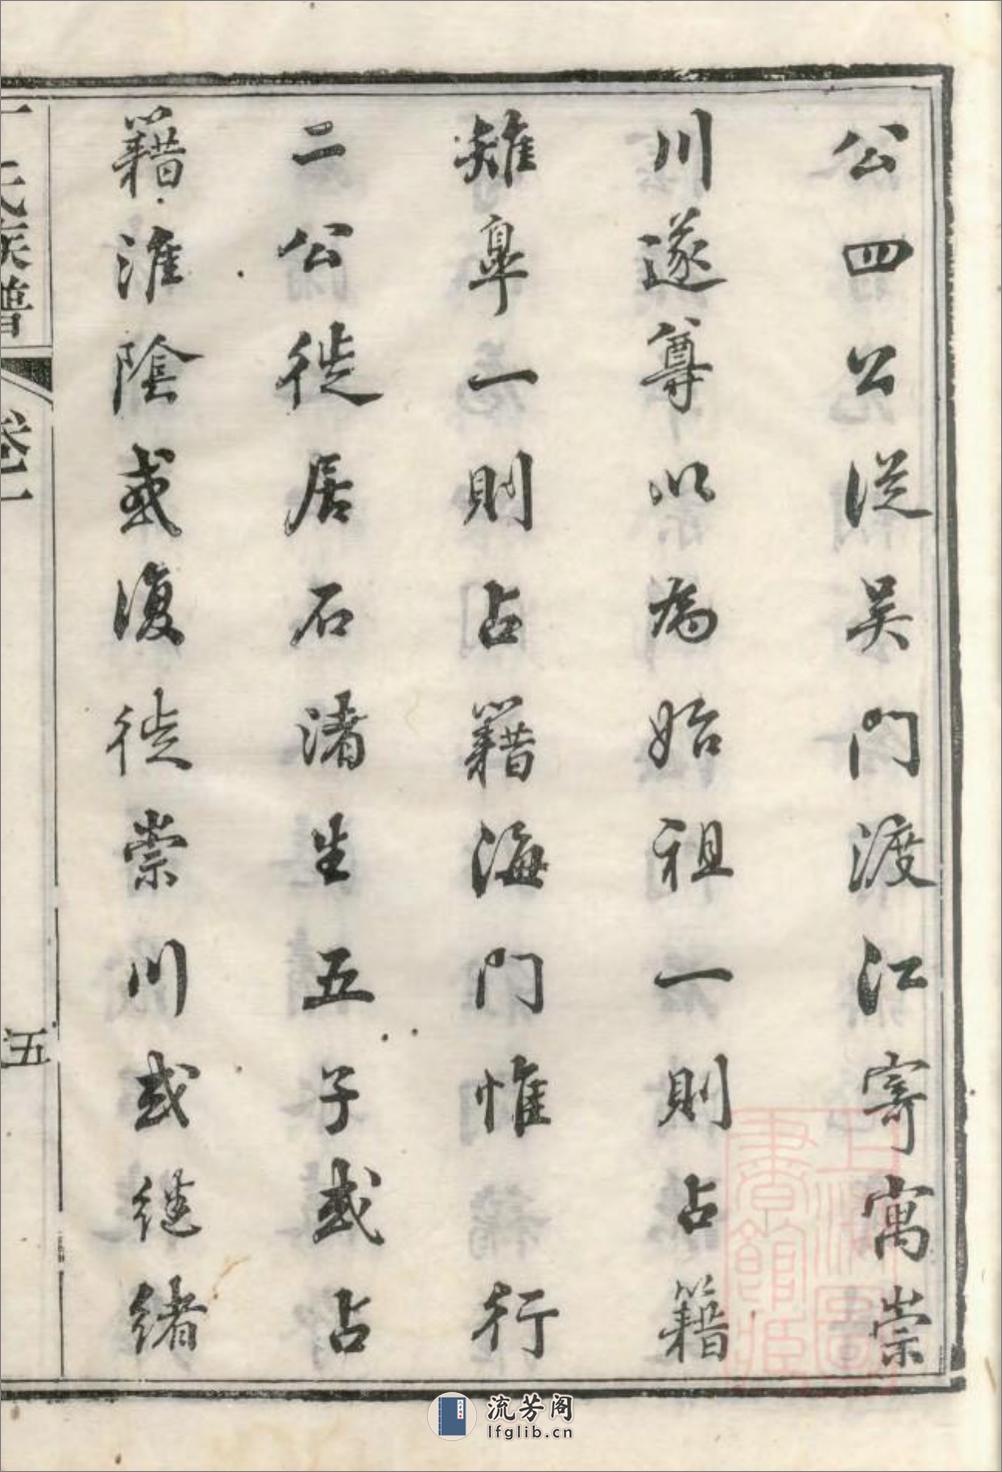 公四公從吴門渡江寄寓崇
川遂尊以為始祖一則占籍
雉皐一則占籍海門惟行
二公徙居石渚生五子或占
籍淮陰或復徙崇川或繼緒
氏族譜
卷一
五
上海圖書館藏
流芳阁
lfglib.cn